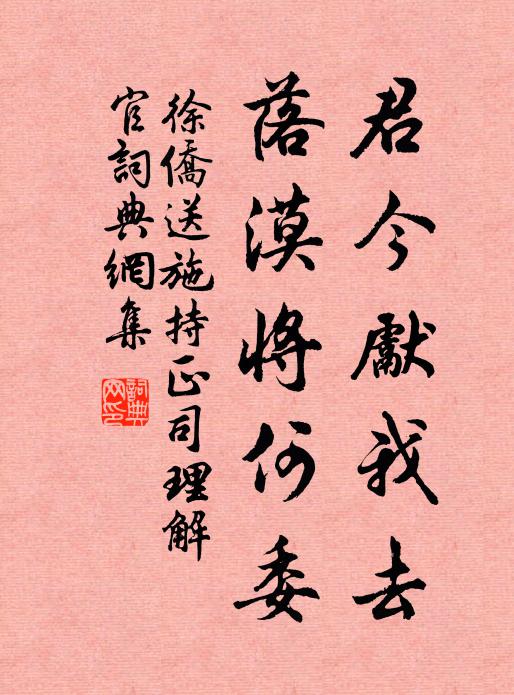 君今獻我去
落漠將何委
徐僑送施持正司理解
官詞典網集
詞典網印